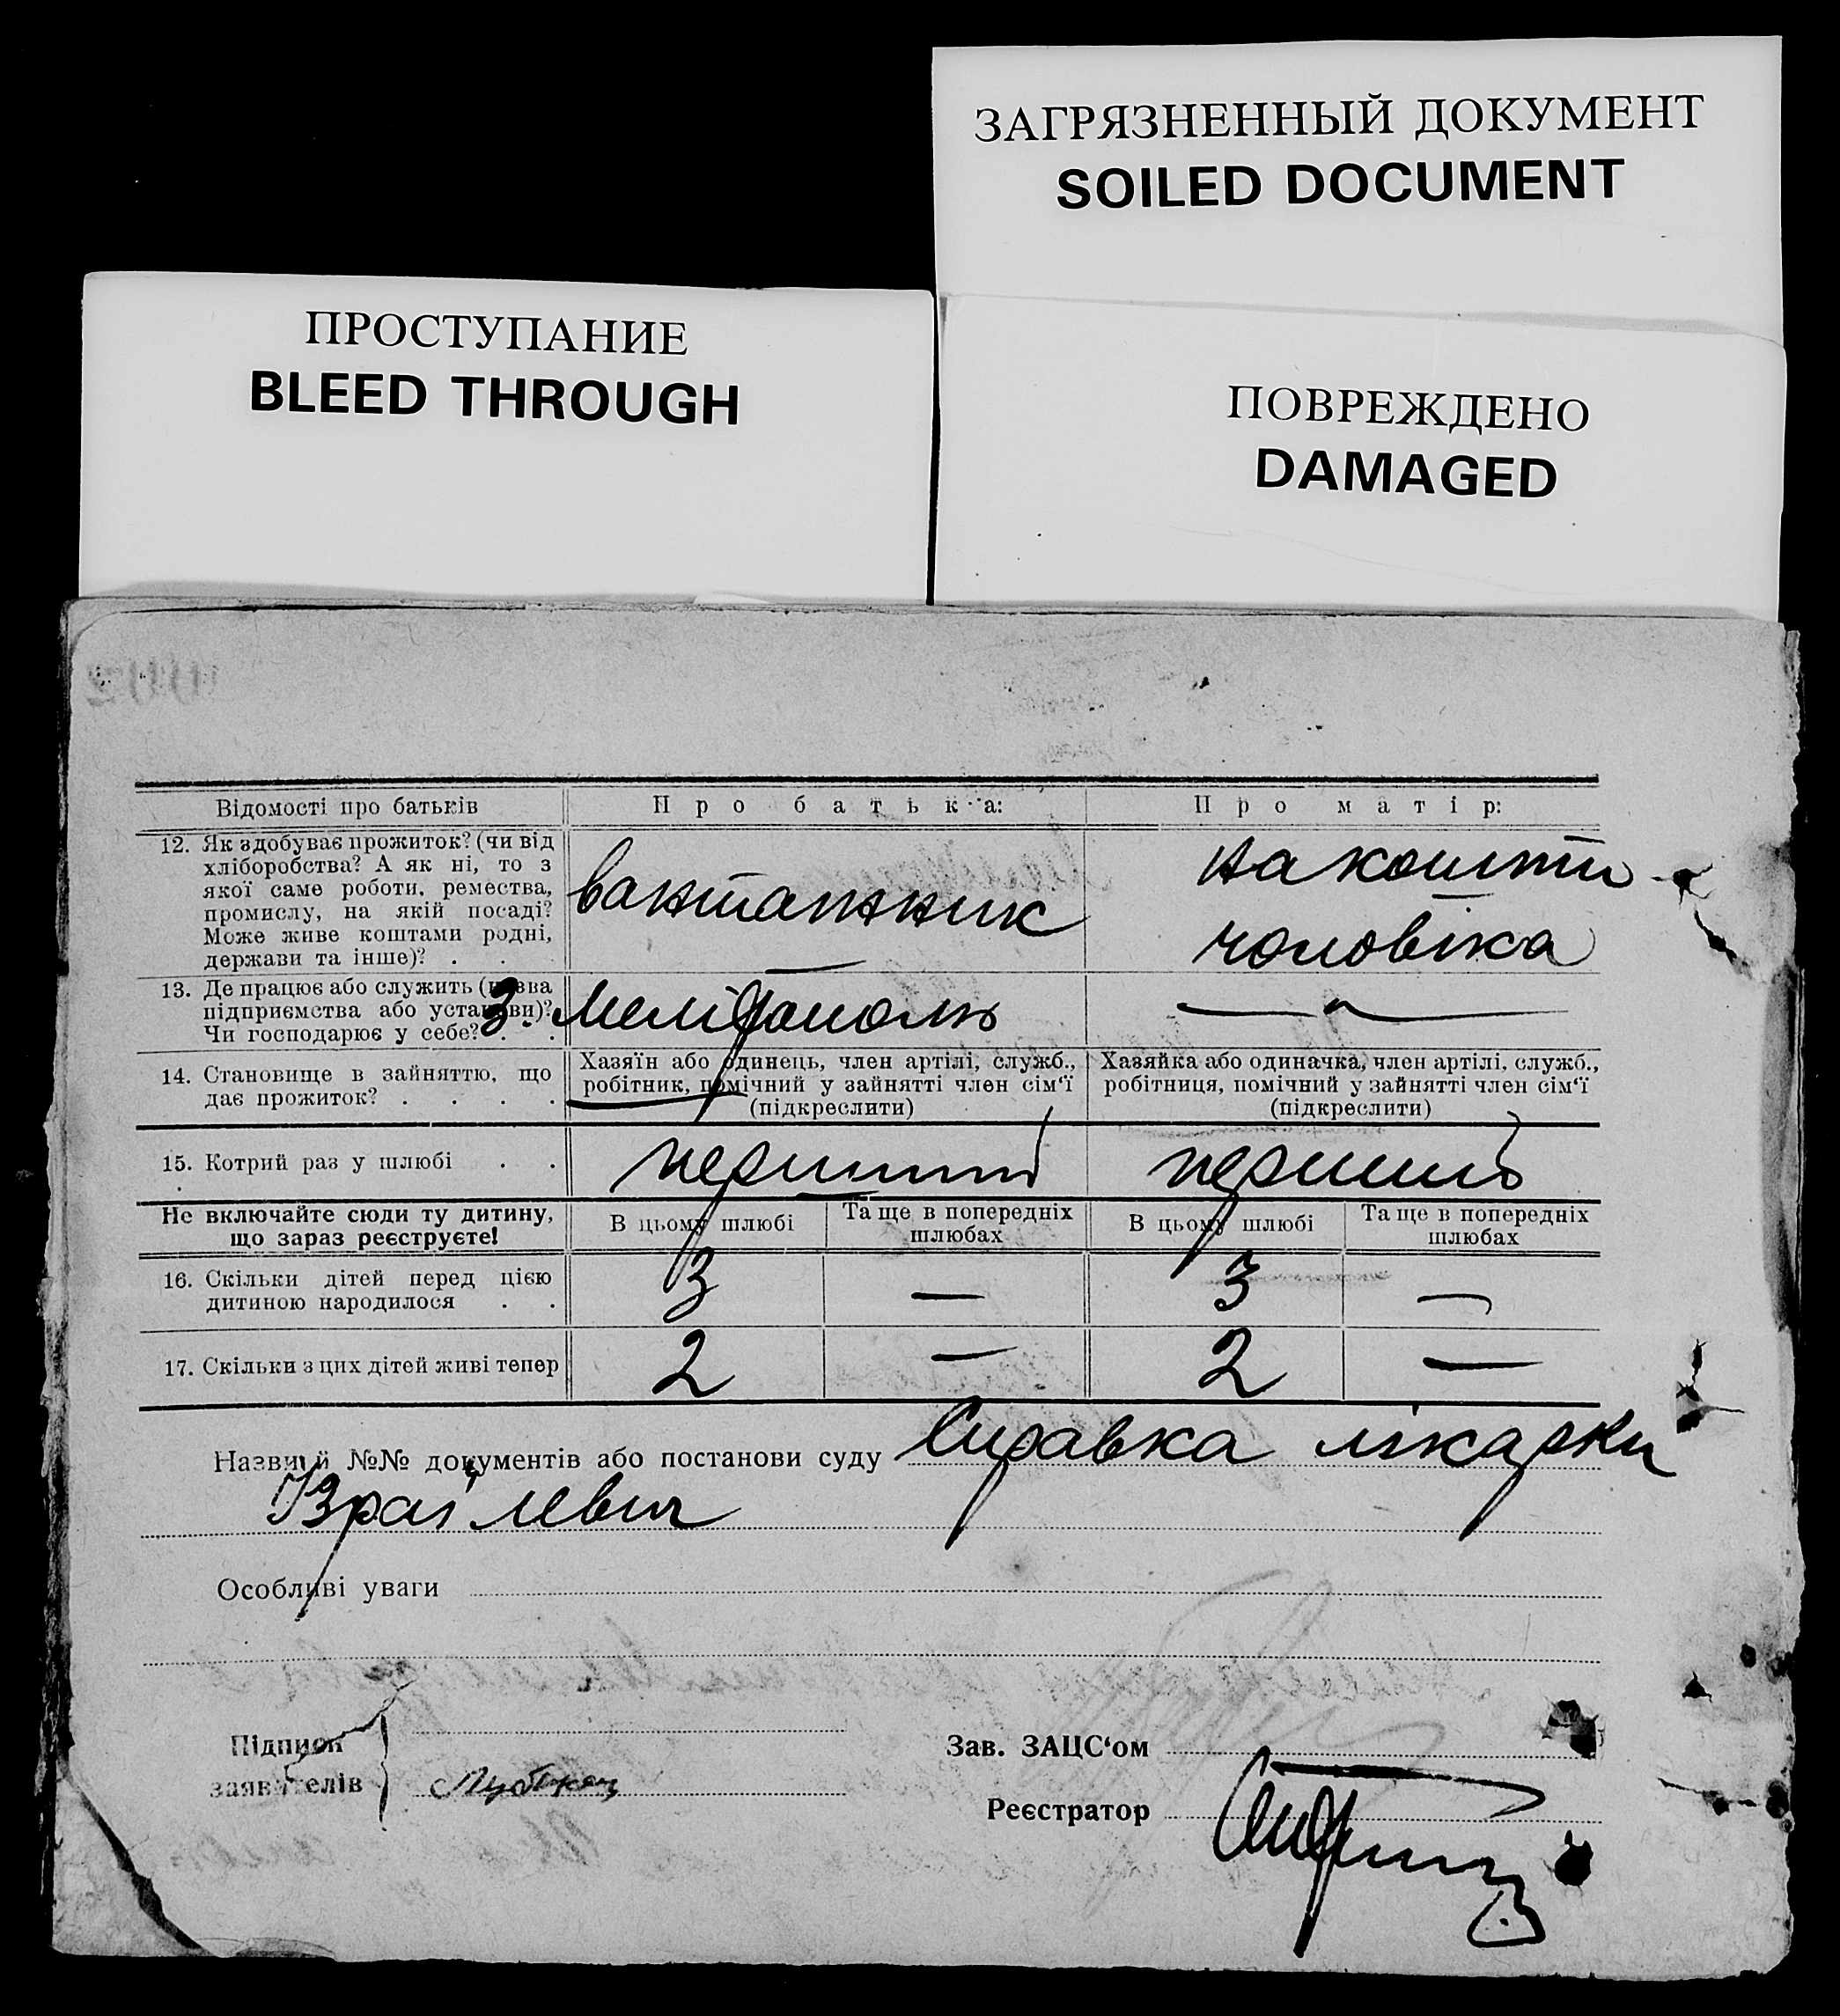 ЗАГРЯЗНЕННЫЙ ДОКУМЕНТ
SOILED DOCUMENT
ПРОСТУПАНИЕ
BLEED THROUGH
ПОВРЕЖДЕНО
DAMAGED
Відомості про батьків
Про батька:
Про матір:
12. Як здобуває прожиток? (чи від
хліборобства? А як ні, то з
якої саме роботи, ремества,
промислу, на якій посаді?
Може живе коштами родні,
держави та інше)? . .
вантажник
на кошти
чоловіка
13. Де працює або служить (назва
підприємства або установи)?
Чи господарює у себе? . .
З. Мелітополь
—
14. Становище в зайняттю, що
дає прожиток? . . . .
Хазяїн або одинець, член артілі, служб.,
робітник, помічний у зайнятті член сім'ї
(підкреслити)
Хазяйка або одиначка, член артілі, служб.,
робітниця, помічний у зайнятті член сім'ї
(підкреслити)
15. Котрий раз у шлюбі . .
перший
перший
Не включайте сюди ту дитину,
що зараз реєструєте!
В цьому шлюбі
Та ще в попередніх
шлюбах
В цьому шлюбі
Та ще в попередніх
шлюбах
16. Скільки дітей перед цією
дитиною народилося . .
3 — 3 —
17. Скільки з цих дітей живі тепер
2 — 2 —
Назви й №№ документів або постанови суду Справка лікарки
Ізраїлевич
Особливі уваги
Підписи
заявителів
Зав. ЗАЦС'ом
Реєстратор